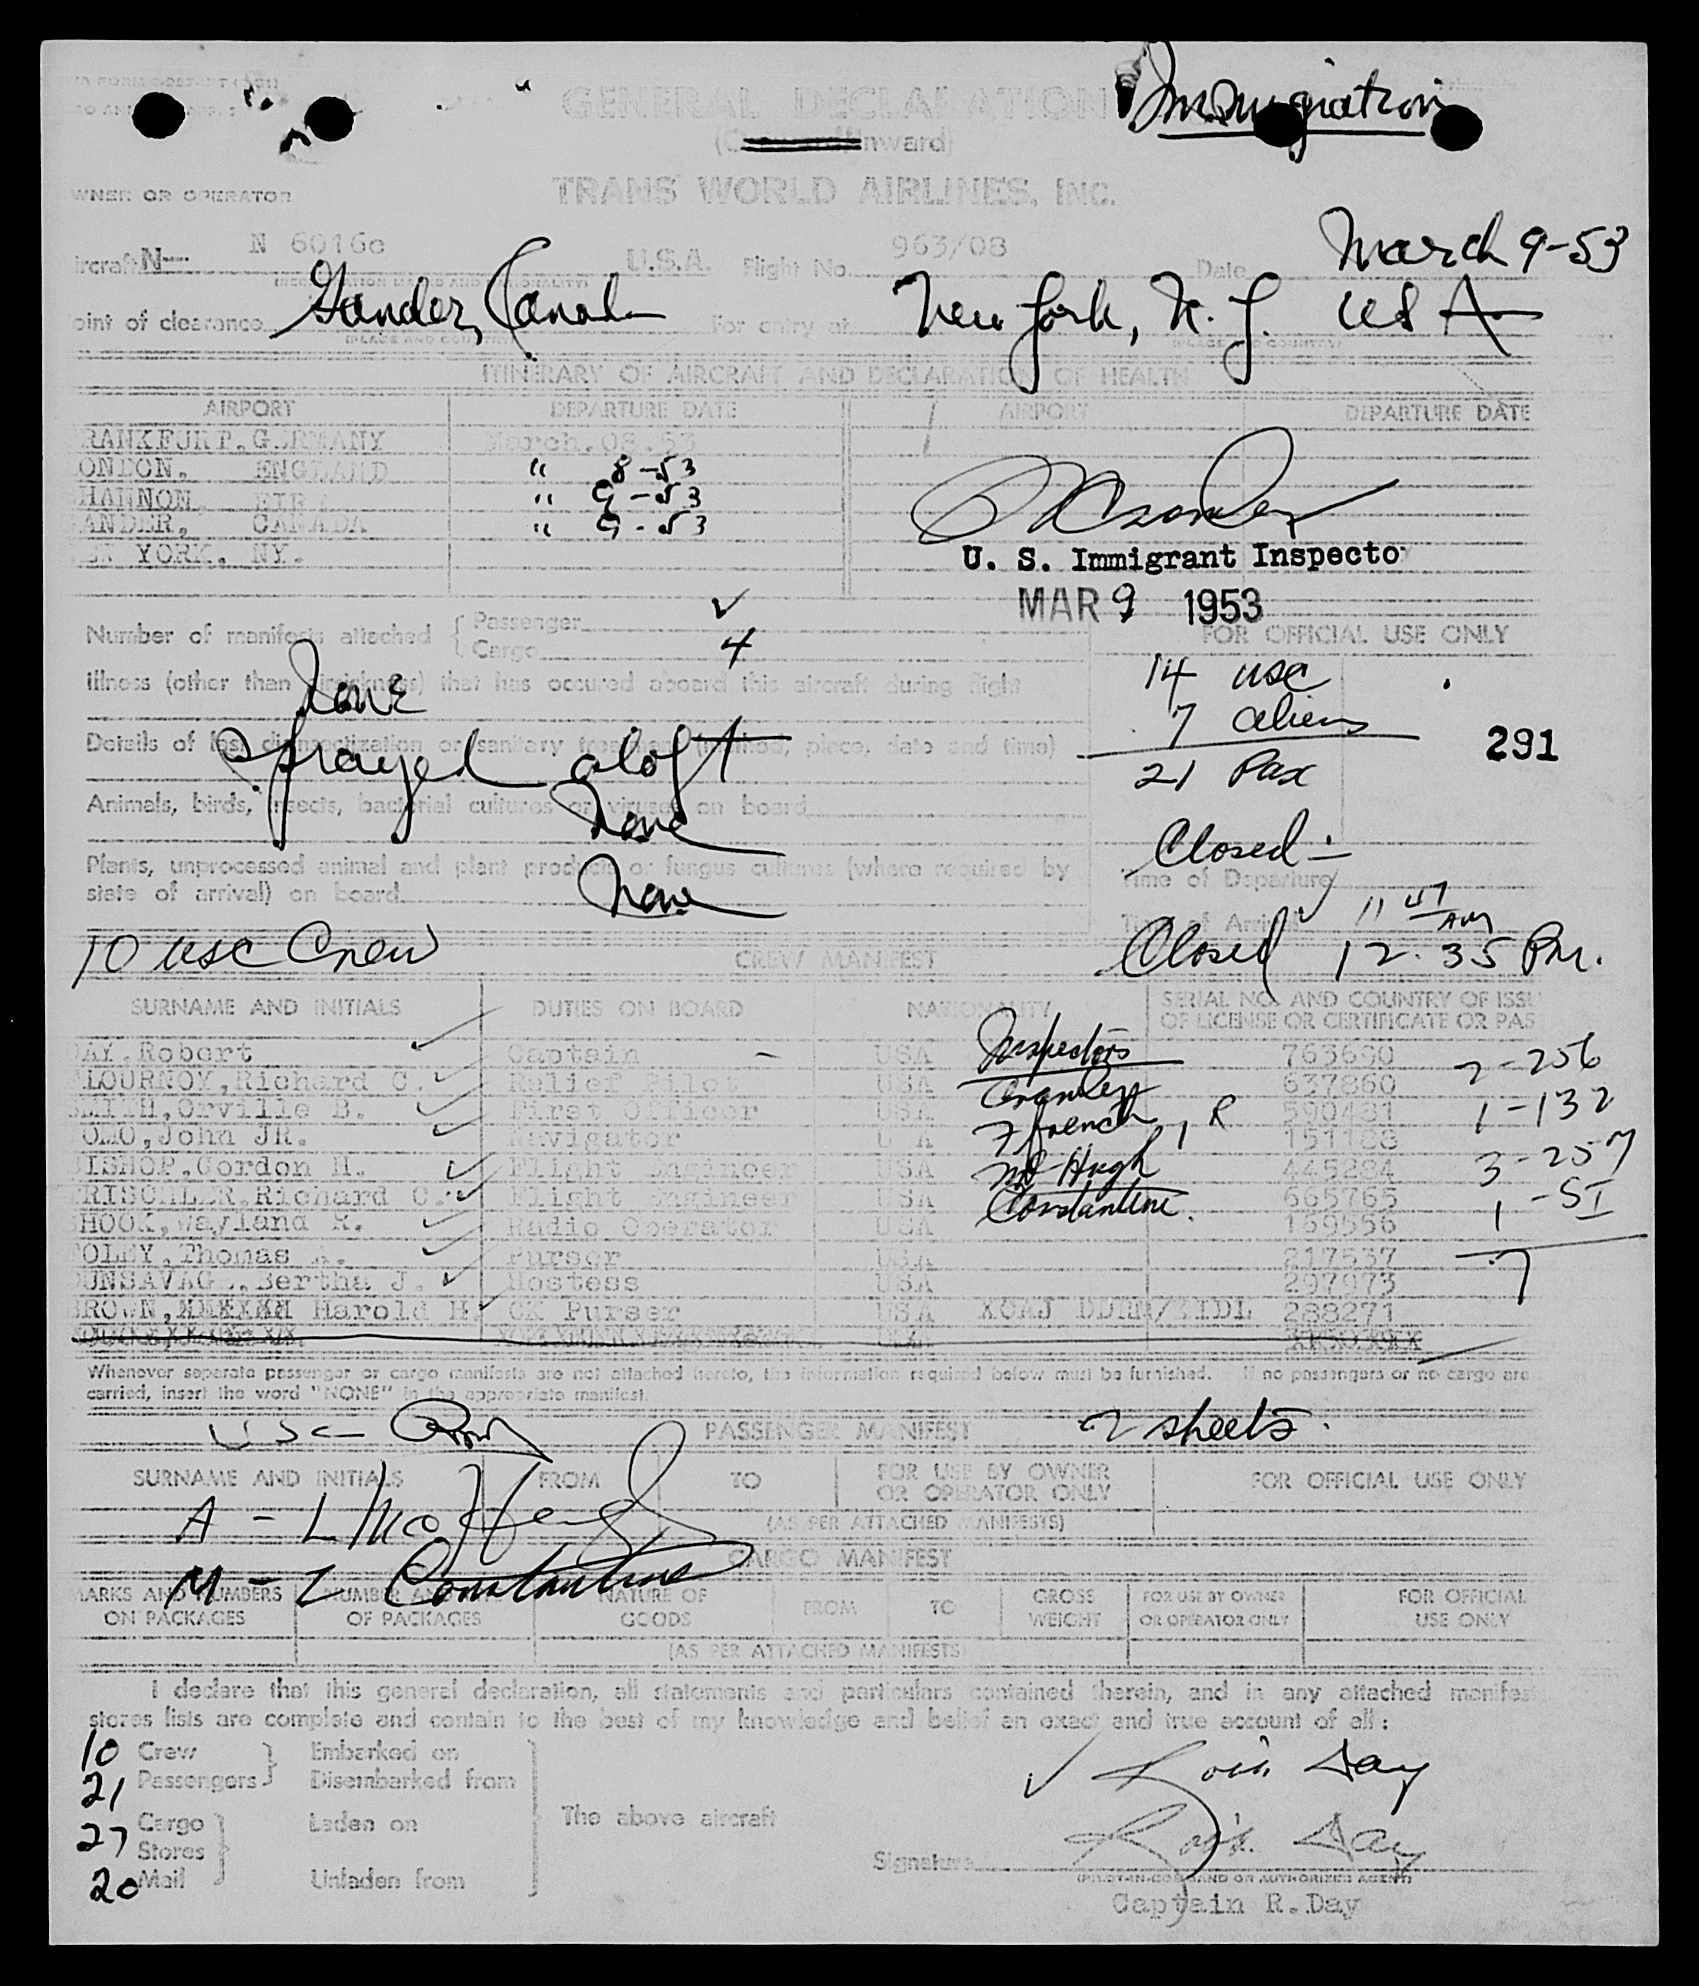 GENERAL DECLARATION
Immigration
Inward)
WNER OR OPERATOR
TRANS WORLD AIRLINES, INC.
ircraft N N 6016c U.S.A. Flight No. 963/08 Date March 9-53
oint of clearance Gander, Canada For entry at New York, N.Y. USA
(PLACE AND COUNTRY)
ITINERARY OF AIRCRAFT AND DECLARATION OF HEALTH
AIRPORT DEPARTURE DATE AIRPORT DEPARTURE DATE
RANKFURT. GERMANY March.08.53
ONDON. ENGLAND " 8-53
HANNON. EIRE " 9-53
ANDER, CANADA " 9-53
EW YORK. NY.
U. S. Immigrant Inspecto
MAR 9 1953
Number of manifests attached { Passenger ✓
Cargo 4
FOR OFFICIAL USE ONLY
Illness (other than airsickness) that has occured aboard this aircraft during flight
None
14 USC
7 aliens
21 Pax
291
Details of last disinsectization or sanitary treatment (method, place, date and time)
Sprayed aloft
Animals, birds, insects, bacterial cultures or viruses on board
None
Closed -
Plants, unprocessed animal and plant products or fungus cultures (where required by
state of arrival) on board
None
Time of Departure
Time of Arrival 11 47 AM
10 USC Crew
CREW MANIFEST
Closed 12.35 PM.
SURNAME AND INITIALS DUTIES ON BOARD NATIONALITY SERIAL NO. AND COUNTRY OF ISSU
OF LICENSE OR CERTIFICATE OR PAS
AY, Robert ✓ Captain - USA Inspectors 763690 2-256
LOURNOY, Richard C. ✓ Relief Pilot USA Cromley 637860
SMITH, Orville B. ✓ First Officer USA French, R 590481 1-132
OMO, John JR. ✓ Navigator USA 151188
BISHOP, Gordon H. ✓ Flight Engineer USA McHugh 445284 3-257
RISCHLER, Richard C. ✓ Flight Engineer USA Constantine. 665765 1-SI
SHOOK, Wayland R. ✓ Radio Operator USA 169556
OLEY, Thomas A. ✓ Purser USA 217537 7
DUNSAVAGE, Bertha J. ✓ Hostess USA 297973
BROWN, Harold H. ✓ CK Purser USA 288271
Whenever separate passenger or cargo manifests are not attached hereto, the information required below must be furnished. If no passengers or no cargo are
carried, insert the word "NONE" in the appropriate manifest.
USC
PASSENGER MANIFEST
2 sheets.
SURNAME AND INITIALS FROM TO FOR USE BY OWNER
OR OPERATOR ONLY FOR OFFICIAL USE ONLY
(AS PER ATTACHED MANIFESTS)
A - L McHugh
CARGO MANIFEST
M - L Constantine
MARKS AND NUMBERS
ON PACKAGES NUMBER AND
OF PACKAGES NATURE OF
GOODS FROM TO GROSS
WEIGHT FOR USE BY OWNER
OR OPERATOR ONLY FOR OFFICIAL
USE ONLY
(AS PER ATTACHED MANIFESTS)
I declare that this general declaration, all statements and particulars contained therein, and in any attached manifes
stores lists are complete and contain to the best of my knowledge and belief an exact and true account of all:
10 Crew Embarked on
21 Passengers Disembarked from
27 Cargo Laden on The above aircraft
Stores
20 Mail Unladen from
✓ Rob't. Day
Signature Rob't. Day
(PILOT-IN-COMMAND OR AUTHORIZED AGENT)
Captain R. Day